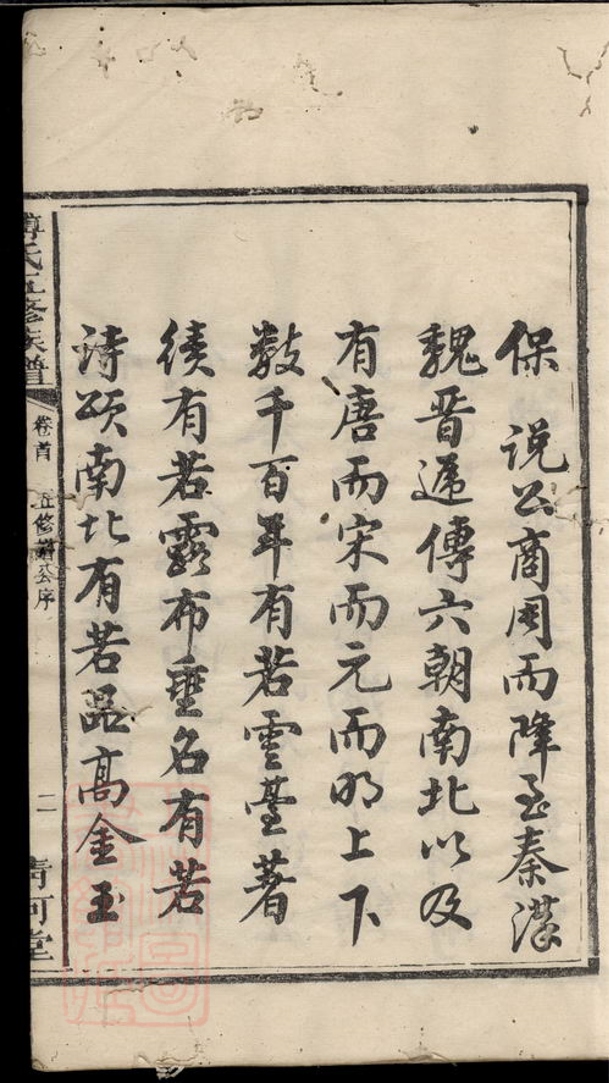 保 说公商周而降至秦漢
魏晋遞傳六朝南北以及
有唐而宋而元而明上下
数千百年有若雲臺著
績有若露布垂名有若
诗颂南北有若品髙金玉
傅氏五修族譜
卷首 五修譜公序
二
清河堂